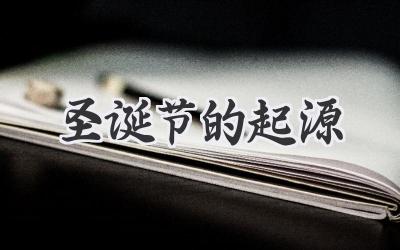 圣诞节的起源